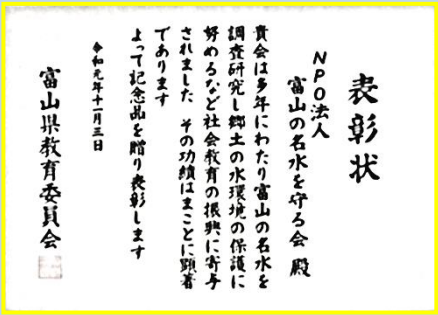 表彰状
NPO法人
富山の名水を守る会 殿
貴会は多年にわたり富山の名水を
調査研究し郷土の水環境の保護に
努めるなど社会教育の振興に寄与
されました その功績はまことに顕著
であります
よって記念品を贈り表彰します
令和元年十一月三日
富山県教育委員会